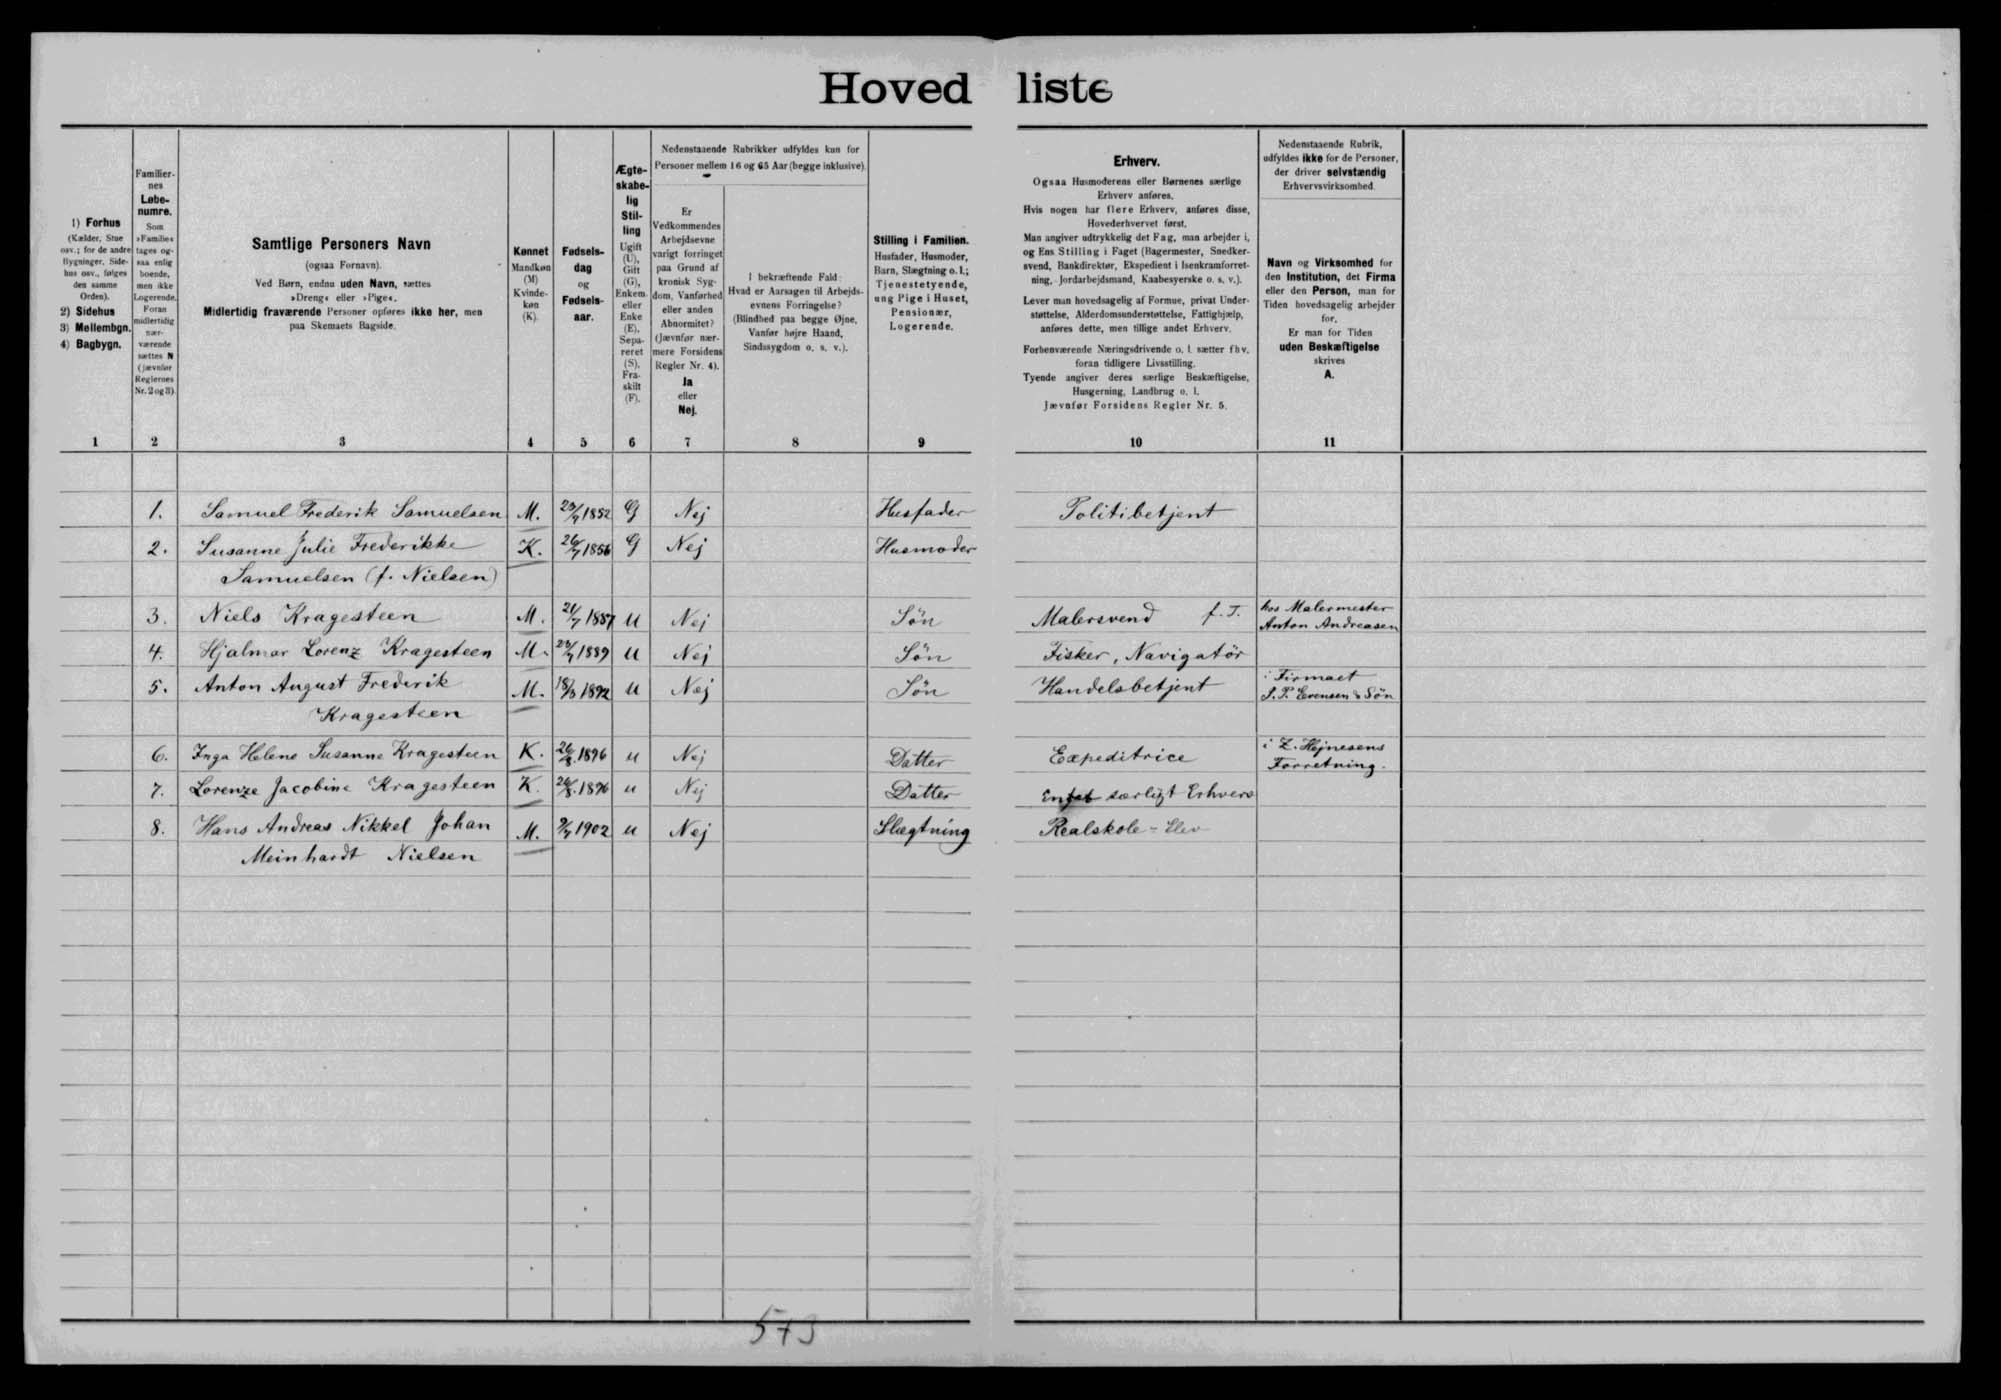 Hovedliste
1) Forhus
(Kælder, Stue
osv.; for de andre
Bygninger, Side-
hus osv., følges
den samme
Orden).
2) Sidehus
3) Mellembgn.
4) Bagbygn.
Familier-
nes
Løbe-
numre.
Som
»Familie«
tages og-
saa enlig
boende,
men ikke
Logerende.
Foran
midlertidig
nær-
værende
sættes N
(jævnfør
Reglernes
Nr. 2 og 3)
Samtlige Personers Navn
(ogsaa Fornavn).
Ved Børn, endnu uden Navn, sættes
»Dreng« eller »Pige«.
Midlertidig fraværende Personer opføres ikke her, men
paa Skemaets Bagside.
Kønnet
Mandkøn
(M)
Kvinde-
køn
(K).
Fødsels-
dag
og
Fødsels-
aar.
Ægte-
skabe-
lig
Stil-
ling
Ugift
(U),
Gift
(G),
Enkem.
eller
Enke
(E),
Sepa-
reret
(S),
Fra-
skilt
(F).
Nedenstaaende Rubrikker udfyldes kun for
Personer mellem 16 og 65 Aar (begge inklusive).
Er
Vedkommendes
Arbejdsevne
varigt forringet
paa Grund af
kronisk Syg-
dom, Vanførhed
eller anden
Abnormitet?
(Jævnfør nær-
mere Forsidens
Regler Nr. 4).
Ja
eller
Nej.
I bekræftende Fald:
Hvad er Aarsagen til Arbejds-
evnens Forringelse?
(Blindhed paa begge Øjne,
Vanfør højre Haand,
Sindssygdom o. s. v.).
Stilling i Familien.
Husfader, Husmoder,
Barn, Slægtning o. l.;
Tjenestetyende,
ung Pige i Huset,
Pensionær,
Logerende.
Erhverv.
Ogsaa Husmoderens eller Børnenes særlige
Erhverv anføres.
Hvis nogen har flere Erhverv, anføres disse,
Hovederhvervet først.
Man angiver udtrykkelig det Fag, man arbejder i,
og Ens Stilling i Faget (Bagermester, Snedker-
svend, Bankdirektør, Ekspedient i Isenkramforret-
ning, Jordarbejdsmand, Kaabesyerske o. s. v.).
Lever man hovedsagelig af Formue, privat Under-
støttelse, Alderdomsunderstøttelse, Fattighjælp,
anføres dette, men tillige andet Erhverv.
Forhenværende Næringsdrivende o. l. sætter fhv.
foran tidligere Livsstilling.
Tyende angiver deres særlige Beskæftigelse,
Husgerning, Landbrug o. l.
Jævnfør Forsidens Regler Nr. 5.
Nedenstaaende Rubrik,
udfyldes ikke for de Personer,
der driver selvstændig
Erhvervsvirksomhed.
Navn og Virksomhed for
den Institution, det Firma
eller den Person, man for
Tiden hovedsagelig arbejder
for.
Er man for Tiden
uden Beskæftigelse
skrives
A.
1 2 3 4 5 6 7 8 9 10 11
1. Samuel Frederik Samuelsen M. 1852 G Nej Husfader Politibetjent
2. Susanne Julie Frederikke K. 1856 G Nej Husmoder
Samuelsen (f. Nielsen)
3. Niels Kragesteen M. 21/7 1887 U Nej Søn Malersvend f. T. hos Malermester
Anton Andreasen
4. Hjalmar Lorenz Kragesteen M. 1889 U Nej Søn Fisker, Navigatör
5. Anton August Frederik M. 1892 U Nej Søn Handelsbetjent i Firmaet
S. P. Evensen & Søn
Kragesteen
6. Inga Helene Susanne Kragesteen K. 26/8. 1896 U Nej Datter Expeditrice i Z. Hejnesens
Forretning.
7. Lorenze Jacobine Kragesteen K. 26/8. 1896 U Nej Datter Intet særligt Erhverv
8. Hans Andreas Nikkel Johan M. 1902 U Nej Slægtning Realskole-Elev
Meinhardt Nielsen
573